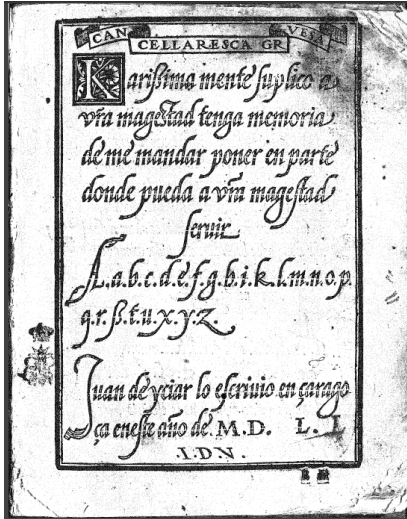 CANCELLARESCA GRUESA
Karisima mente suplico a
vr̃a magestad tenga memoria
de me mandar poner en parte
donde pueda a vr̃a magestad
seruir
A.a.b.c.d.e.f.g.h.i.k.l.m.n.o.p.
q.r.ß.t.u.x.y.z
Juan de yciar lo escriuio en çarago
ça eneste año de. M.D. L. I
.I.D.N.